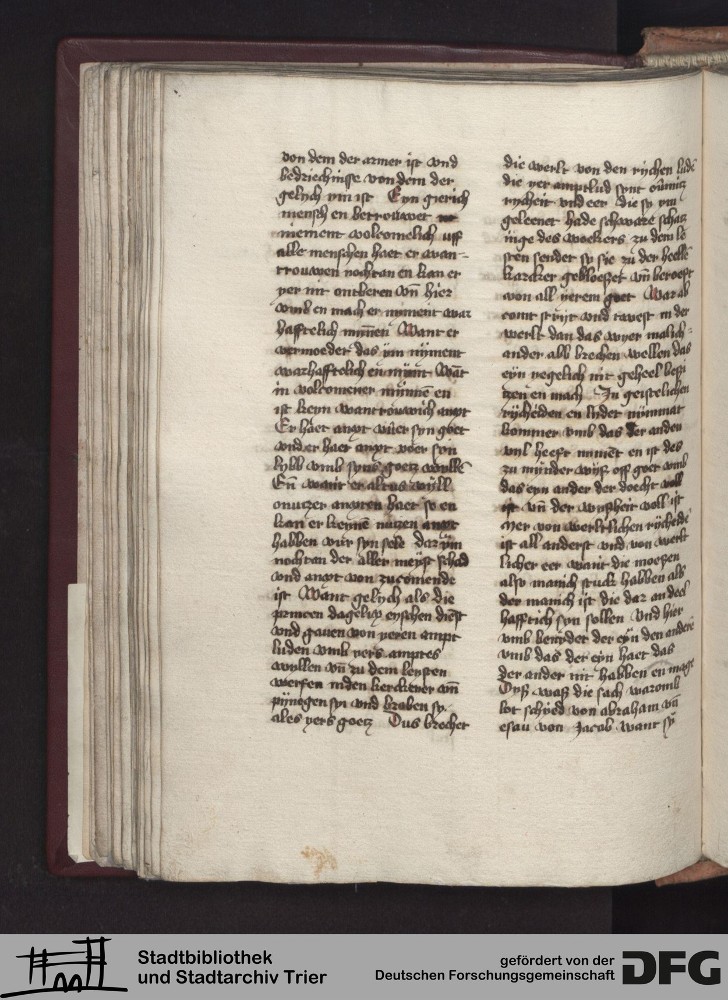 von dem der armer ist vnd
bedriechnisse von dem der
gelych ym ist Eyn gierich
mensch en betrouwet
niement volcomelich uff
alle menschen haet er wan-
trouwen nochtan en kan er
yer nit ontberen vn̄ hier
vmb en mach er nyment war
hafftelich mỹnen Want er
vermoedet das ym nyment
warhafftelich en mynt Wāt
in volcomener mỹnnē en
ist keyn wantrouwich anxt
Er haet anxt vuer syn goet
vnd er haet anxt voer syn
lybb vmb syns goetz wyllē
En want er altus vyll
onutzer anxten haet so en
kan er keynē nutzen anxt
habben vuer syn sele dar ym
nochtan der aller meyst schad
vnd anxt von zucomende
ist Want gelych als die
princen dagelix eyschen diēst
vnd gauen von yeren ampt
luden vmb yers amptes
wyllen vn̄ zu dem lesten
werfen in den kerckener vn̄
pynegen sy vnd beroben sy
ales yers goetz Dus brechet
die werlt von den rychen lude
die yer amptlud synt
rycheit vnd eer die sy ym
geleenet hade schware schatz
inge des woekers zu dem le
sten sendet sy sie zu der hellē
karcker gebloeszet vn̄ beroeft
von all yerem goet War ab
comt stryt vnd twest in der
werlt dan das wyer malich-
ander abb brechen wellen das
eyn yegelich nit geheel besi
tzen en mach In geistelichen
rycheiden en lidet nymmant
kommer vmb das der ander
vyl heeft mīnet en ist des
zu mynder wyss off goet vmb
das eyn ander der doecht voll
ist vn̄ der wyssheit voll ist
Mer von werltlichen rycheidē
ist all anderst vnd von werlt
licher eer want die moeszen
also manich stuck habben als
der manich ist die dar an deel
hafftich syn sollen Vnd hier
vmb benydet der eyn den anderē
vmb das der eyn haet das
der ander nit habben en mage
Dyss wass die sach waromb
lot schyed von abraham vn̄
esau von Jacob want sy
Stadtbibliothek
und Stadtarchiv Trier
gefördert von der
Deutschen Forschungsgemeinschaft
DFG